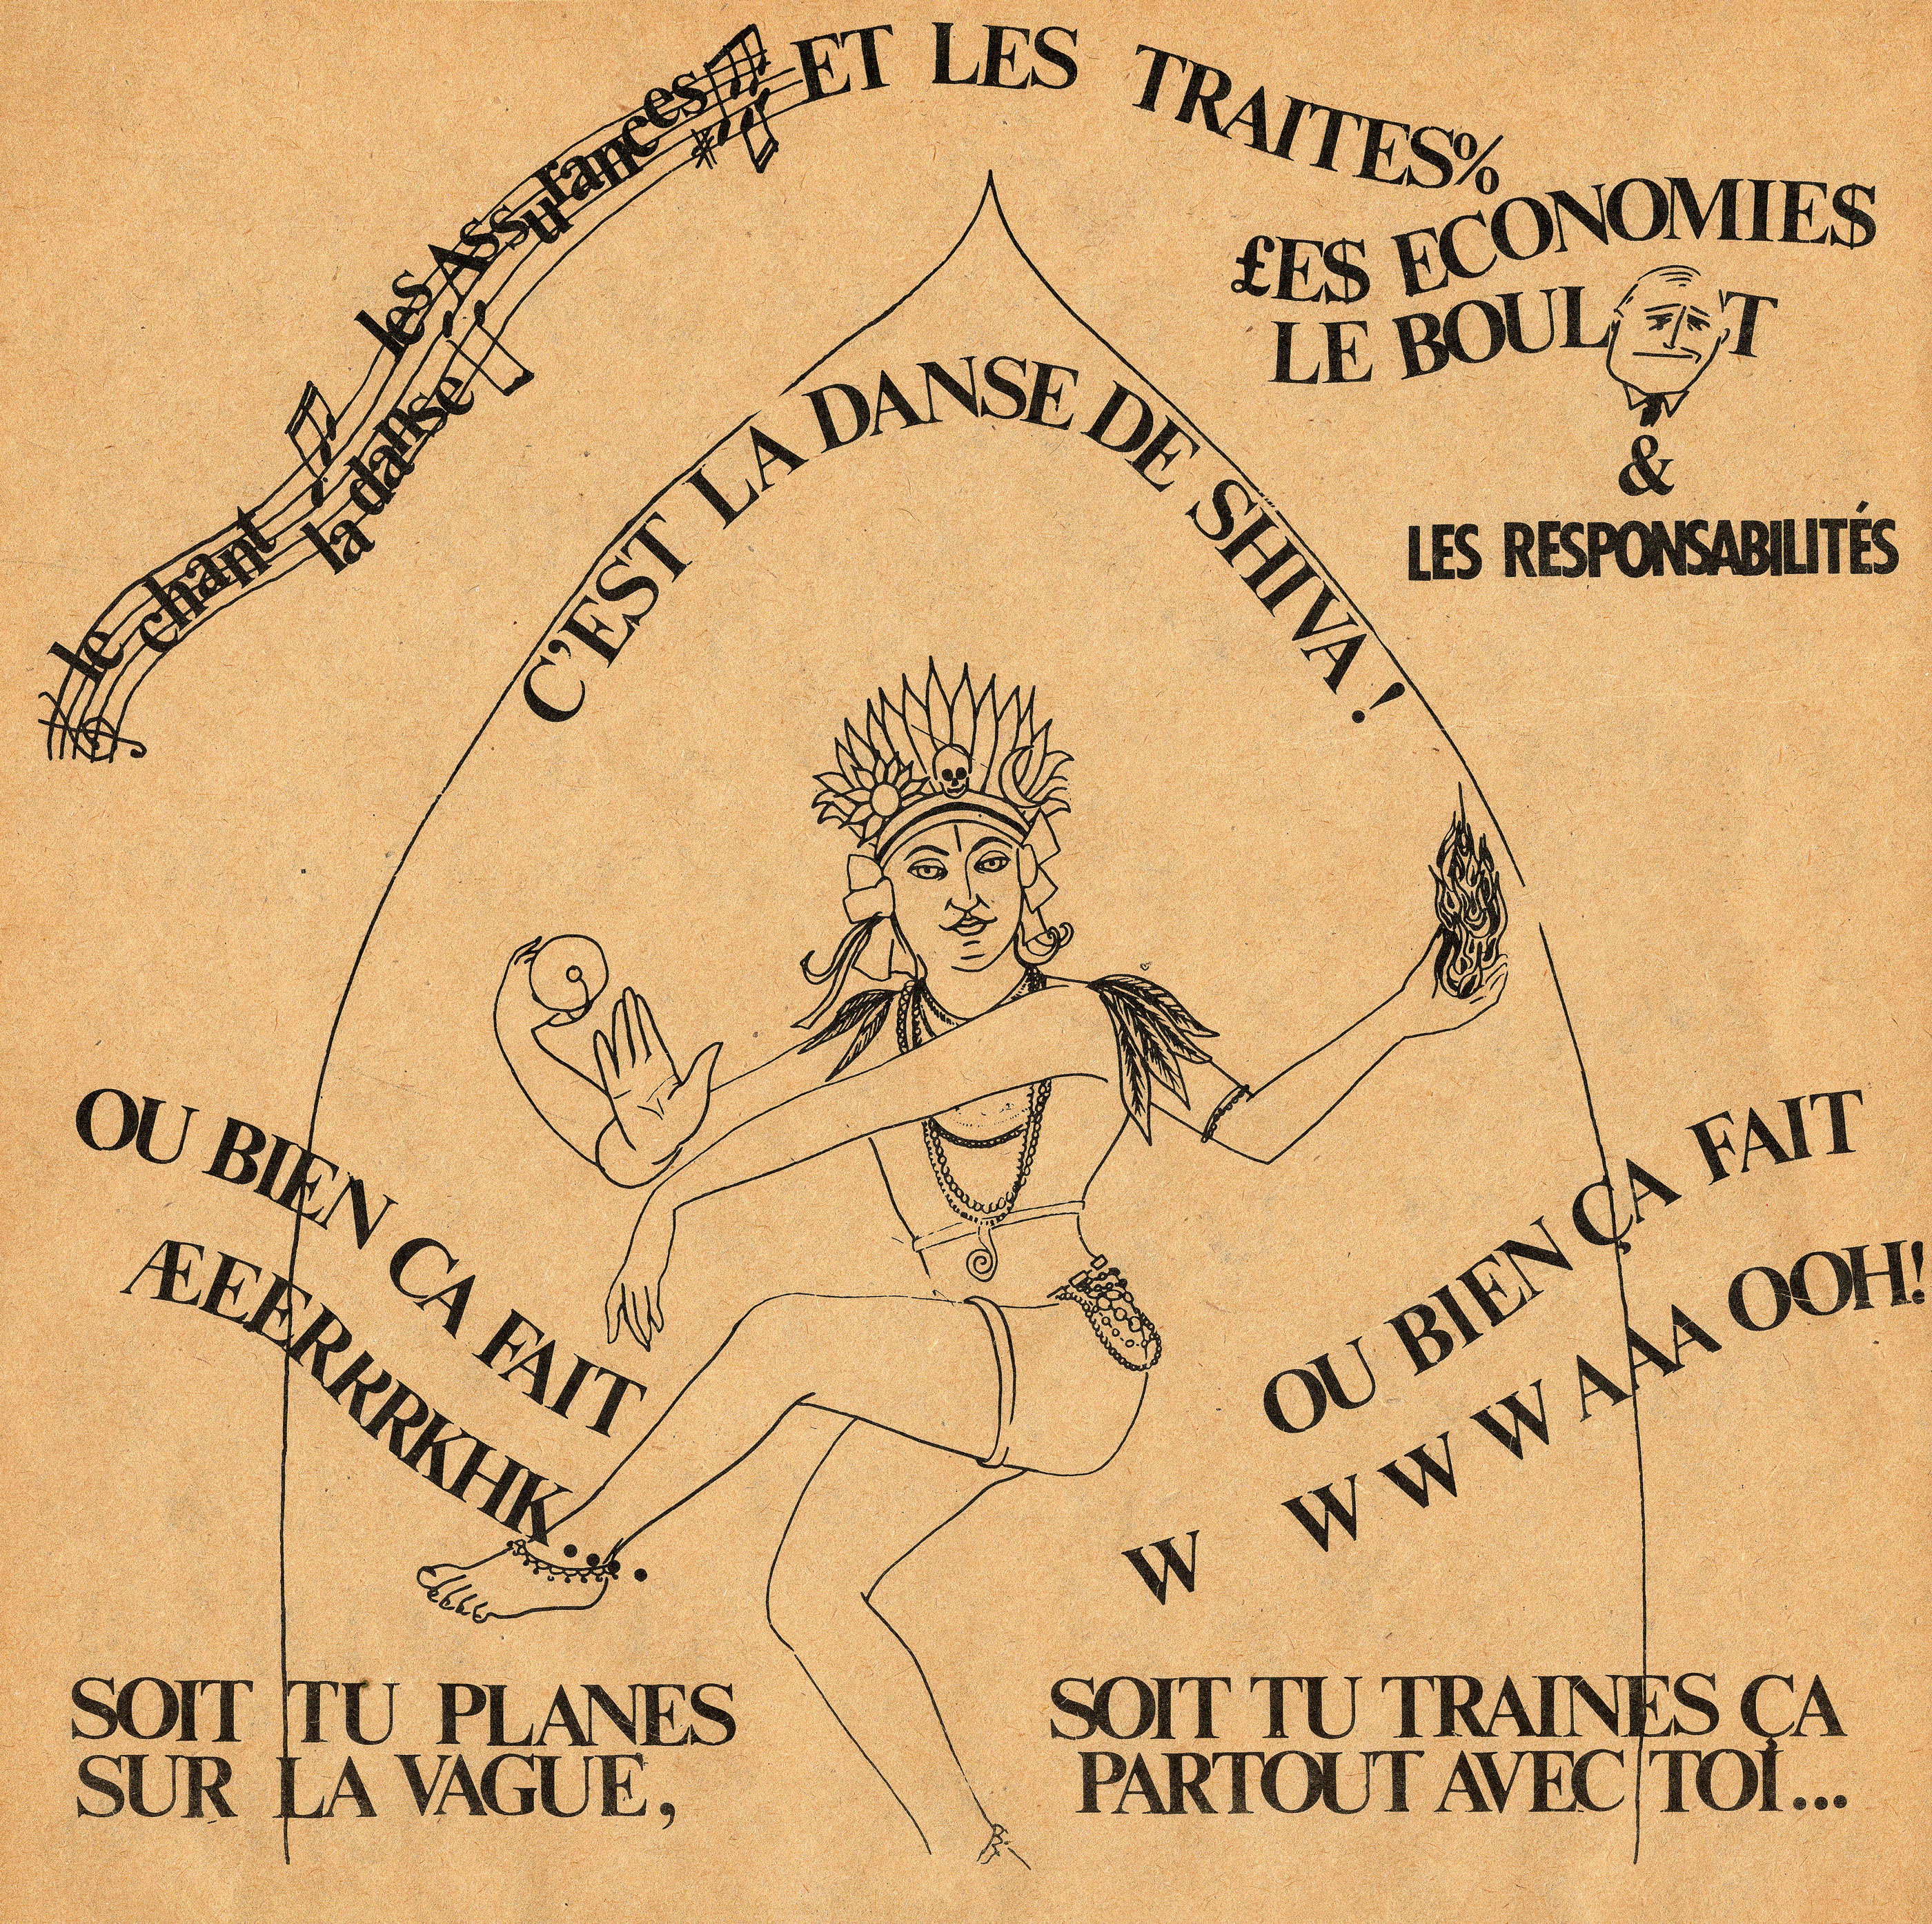 le chant
la danse
les Assurances
ET LES TRAITES%
£E$ ECONOMIE$
LE BOULOT
&
LES RESPONSABILITÉS
C'EST LA DANSE DE SHIVA!
OU BIEN CA FAIT
ÆEERRRKHK....
OU BIEN ÇA FAIT
W W W W A A A OOH!
SOIT TU PLANES
SUR LA VAGUE,
SOIT TU TRAINES ÇA
PARTOUT AVEC TOI...